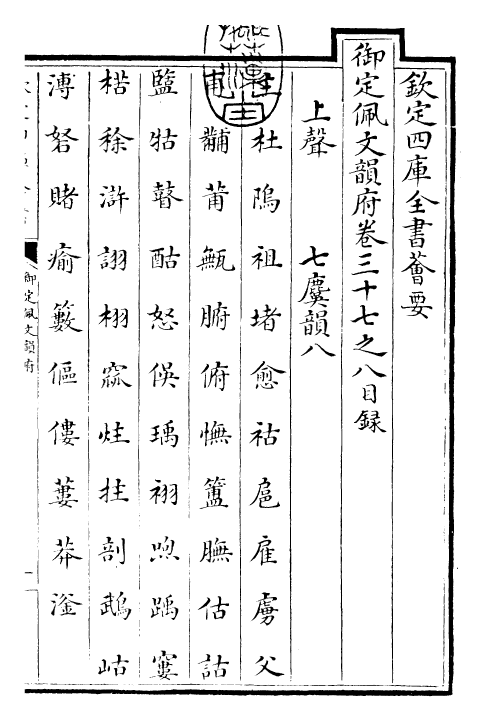 欽定四庫全書薈要
御定佩文韻府卷三十七之八目録
上聲 七麌韻八
土杜隖祖堵愈祜扈雇虜父
甫黼莆甒腑俯憮簠膴估詁
盬牯瞽酤怒俁瑀祤喣踽寠
楛稌滸詡栩窳炷拄剖鵡岵
溥弩賭瘉籔傴僂蔞莽滏
御定佩文韻府